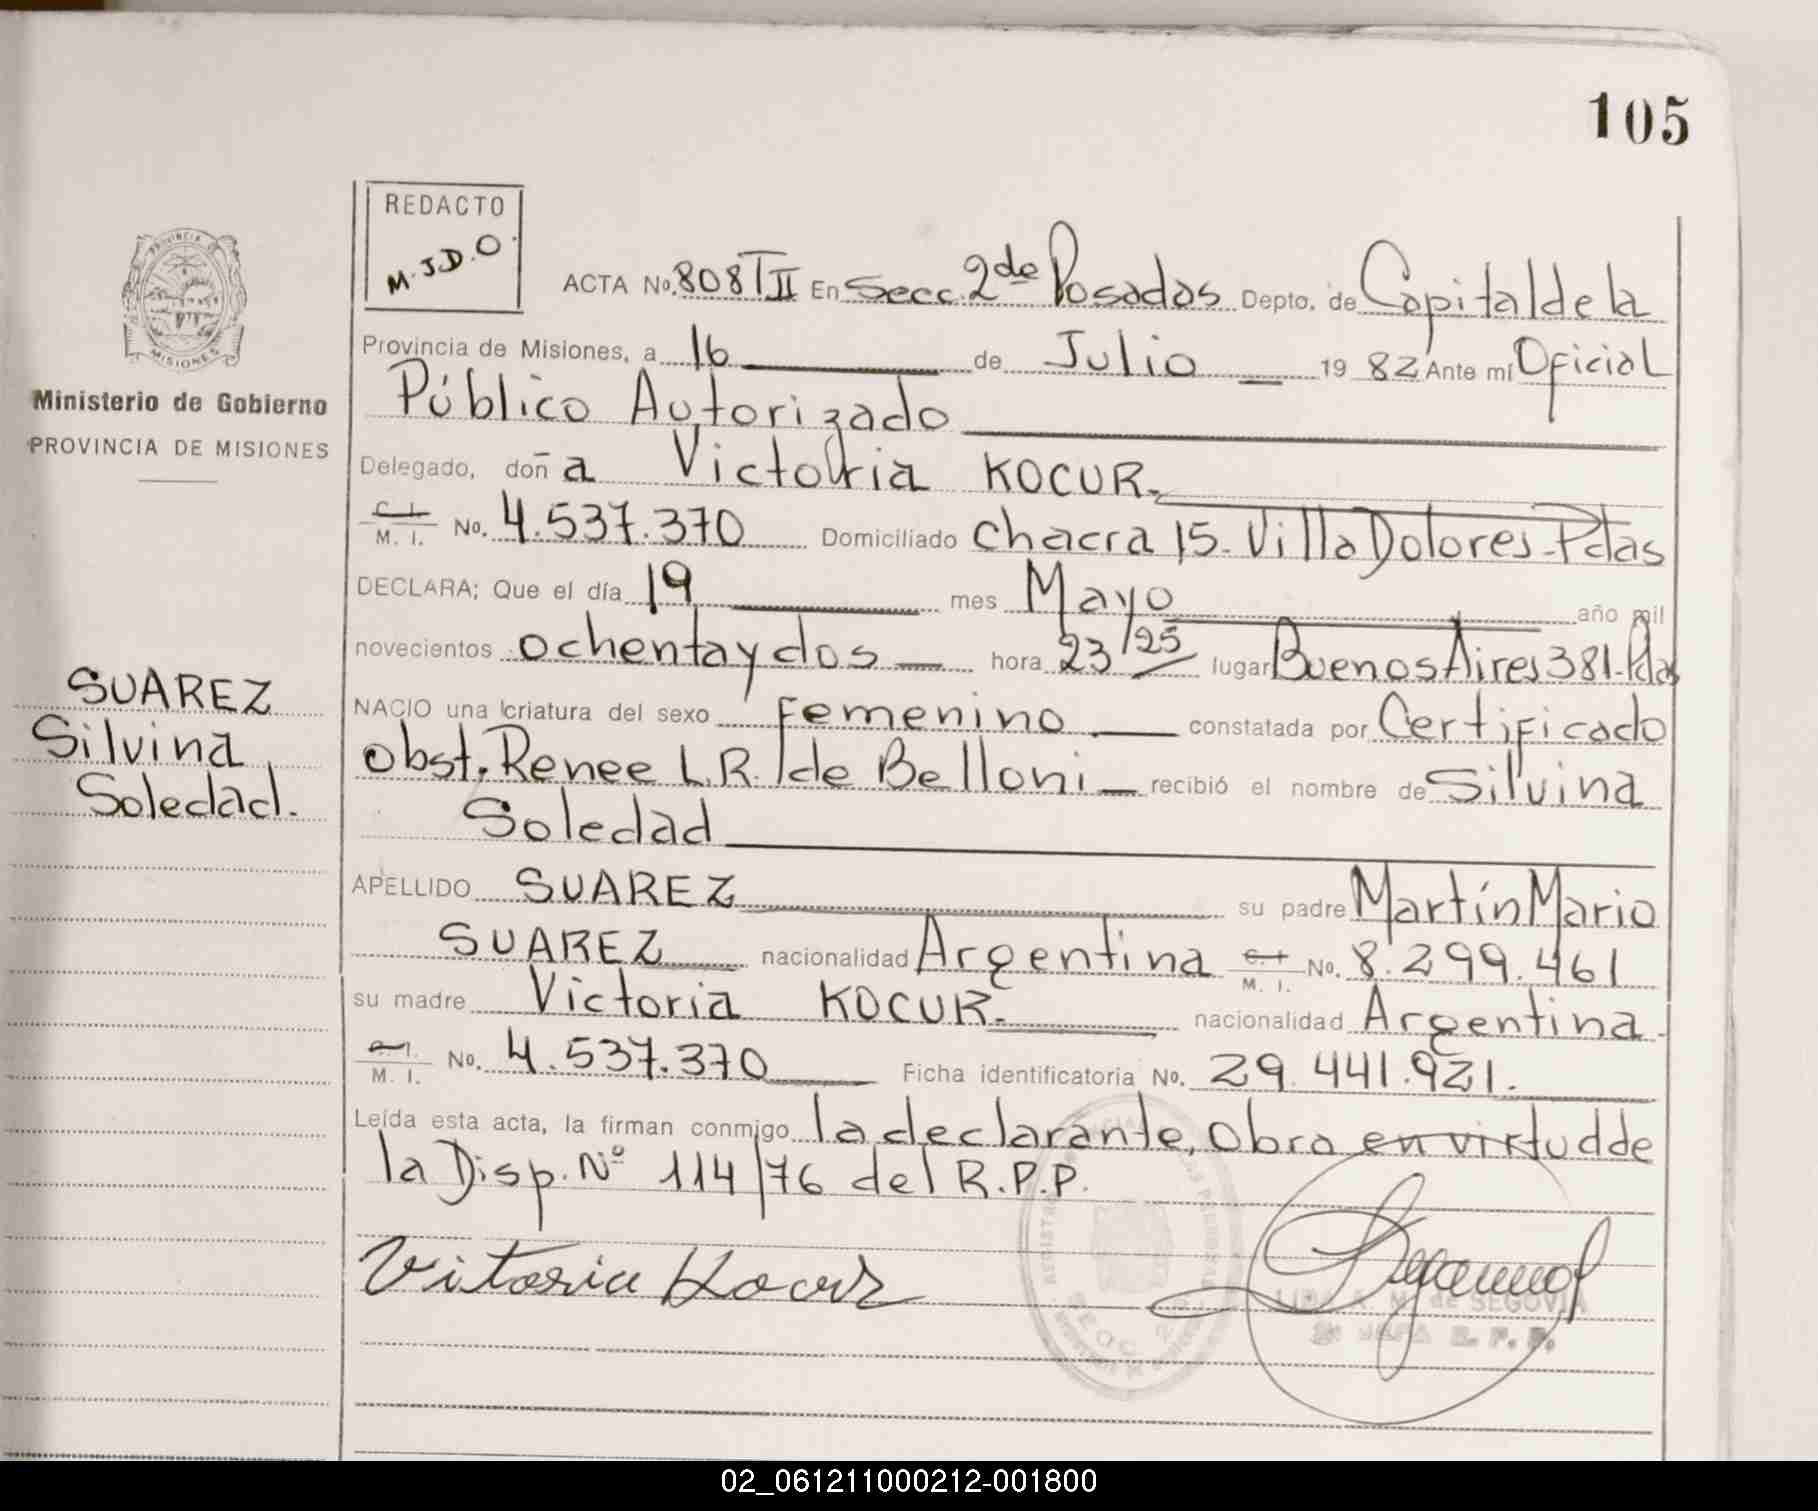 105
REDACTO
M.J.D.O.
ACTA No. 808 TII En Secc. 2da Posadas Depto. de Capital de la
Provincia de Misiones, a 16 de Julio 1982 Ante mi Oficial
Público Autorizado
Delegado, doña Victoria KOCUR.
C. I. M. I. No. 4.537.370 Domiciliado Chacra 15. Villa Dolores-Pdas
DECLARA; Que el día 19 mes Mayo año mil
novecientos ochenta y dos hora 23/25 lugar Buenos Aires 381-Pdas
NACIO una criatura del sexo Femenino constatada por Certificado
obst. Renee L.R. de Belloni recibió el nombre de Silvina
Soledad
APELLIDO SUAREZ su padre Martín Mario
SUAREZ nacionalidad Argentina C. I. M. I. No. 8.299.461
su madre Victoria KOCUR. nacionalidad Argentina.
C. I. M. I. No. 4.537.370 Ficha identificatoria No. 29.441.921.
Leída esta acta, la firman conmigo la declarante, Obro en virtud de
la Disp. Nº 114/76 del R.P.P.
Vitoria Kocur
de SEGOVIA
PROVINCIA DE
MISIONES
Ministerio de Gobierno
PROVINCIA DE MISIONES
SUAREZ
Silvina
Soledad.
02_061211000212-001800